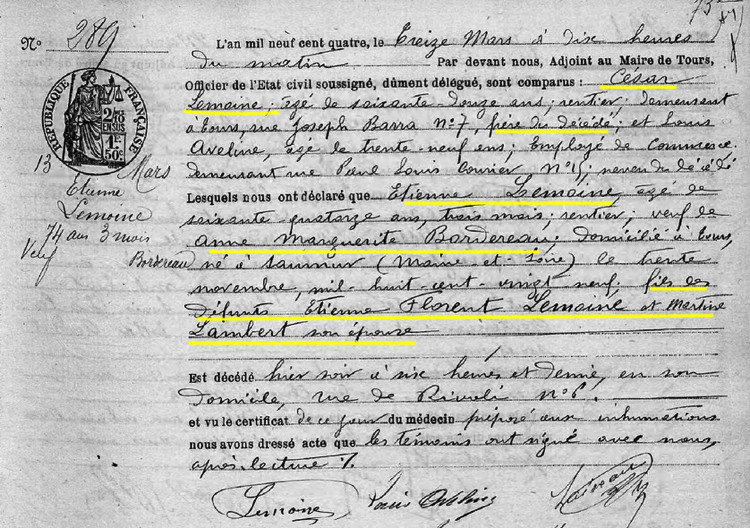 No 289
L'an mil neuf cent quatre, le treize Mars à dix heures
du matin Par devant nous, Adjoint au Maire de Tours,
Officier de l'Etat civil soussigné, dûment délégué, sont comparus : César
Lemoine ; agé de soixante-douze ans ; rentier ; demeurant
à Tours, rue Joseph Barra No 7, frère du décédé ; et Louis
Aveline, agé de trente-neuf ans ; Employé de Commerce
demeurant rue Paul Louis Courier No 15, neveu du décédé
Lesquels nous ont déclaré que Etienne Lemoine, agé de
soixante-quatorze ans, trois mois ; rentier ; veuf de
Anne Marguerite Bordereau ; domicilié à Tours,
né à Saumur (Maine-et-Loire) le trente
novembre, mil-huit-cent-vingt neuf ; fils des
défunts Etienne Florent Lemoine et Martine
Lambert son épouse
Est décédé hier soir à six heures et demie, en son
domicile, rue de Rivoli No 6.
et vu le certificat de ce jour du médecin préposé aux inhumations
nous avons dressé acte que les témoins ont signé avec nous,
après lecture ./.
Lemoine Louis Aveline
RÉPUBLIQUE FRANÇAISE
13 Mars
Etienne
Lemoine
74 ans 3 mois
Veuf Bordereau